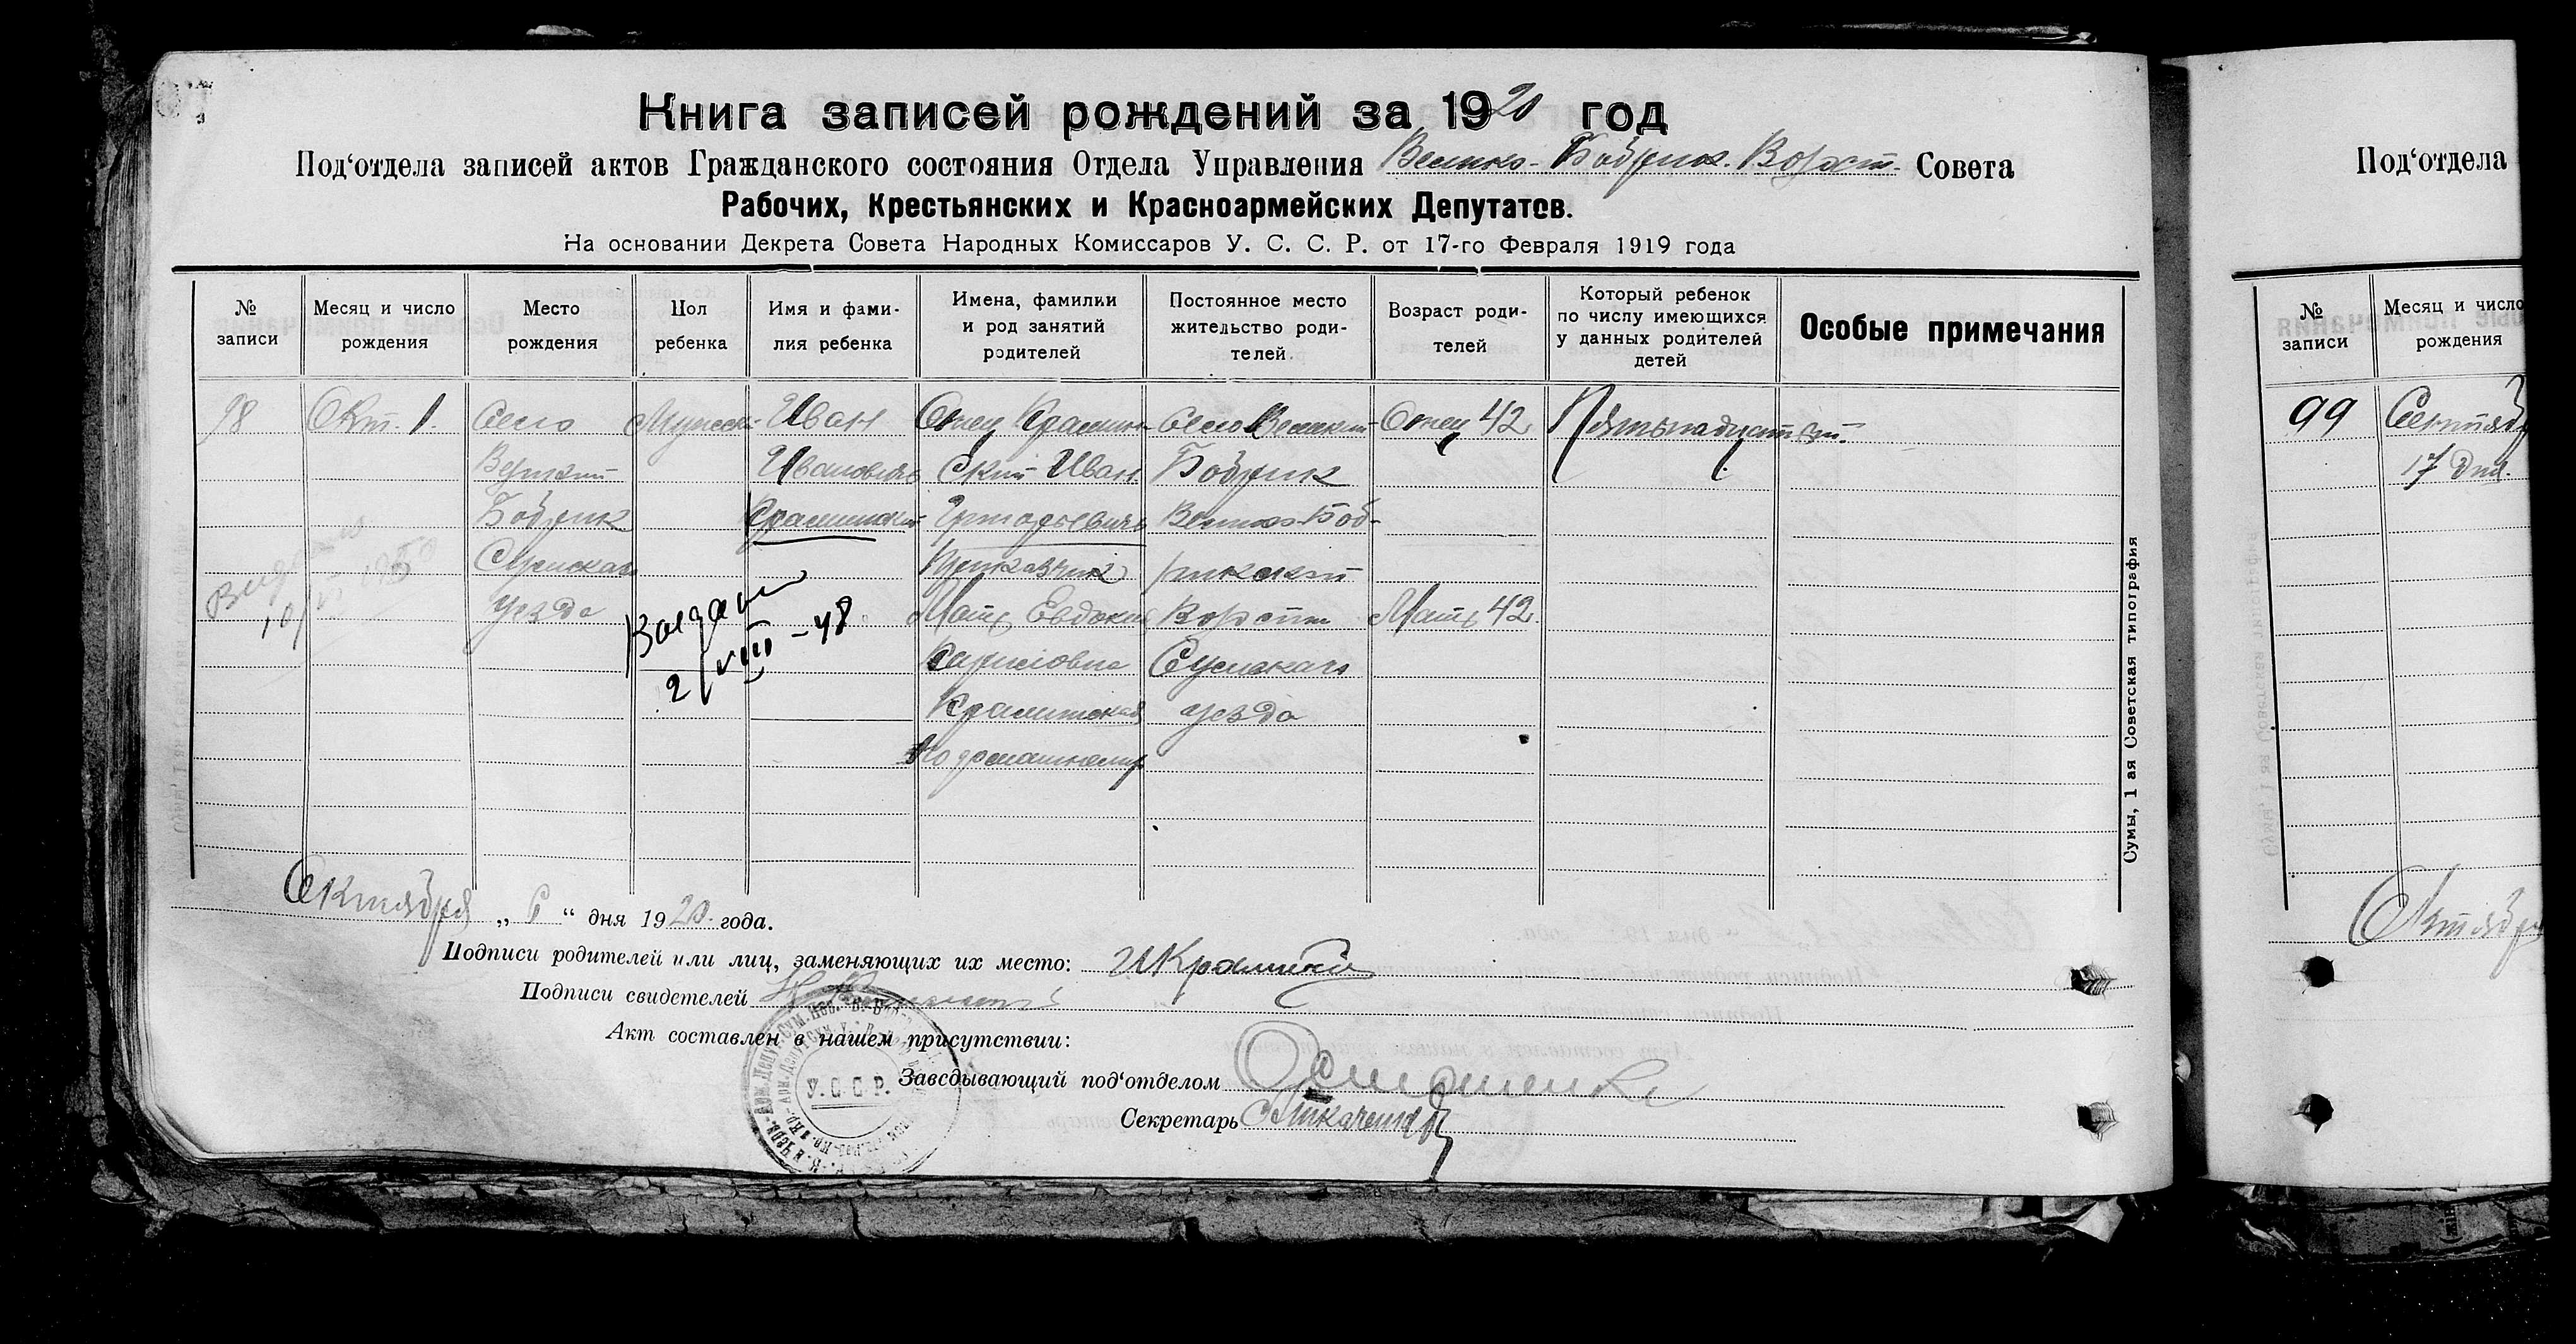 Книга записей рождений за 1920 год
Под‘отдела записей актов Гражданского состояния Отдела Управления Велико-Бобрик. Волост. Совета
Рабочих, Крестьянских и Красноармейских Депутатов.
На основании Декрета Совета Народных Комиссаров У. С. С. Р. от 17-го Февраля 1919 года
№ записи
Месяц и число рождения
Место рождения
Пол ребенка
Имя и фами-
лия ребенка
Имена, фамилии
и род занятий
родителей
Постоянное место
жительство роди-
телей
Возраст роди-
телей
Который ребенок
по числу имеющихся
у данных родителей
детей
Особые примечания
98
Окт. 1.
Село
Бобрик
Сумскаго
уезда
Мужеск.
Иван
Иванович
Отец
Иван
Приказчик
Мать Евдокия
Село Великий
Бобрик
Велико-Боб-
рикской
Волости
Сумскаго
уезда
Отец 42
Мать 42
Пятьнадцатый.
10/
1950
2/VIII-48
Октября „ 6 “ дня 1920. года.
Подписи родителей или лиц, заменяющих их место:
Подписи свидетелей
Акт составлен в нашем присутствии:
Заведывающий под‘отделом
Секретарь
У.С.С.Р.
Сумы, 1 ая Советская типография
Под‘отдела
№ записи
Месяц и число
рождения
99
Сентяб
17 дня.
Октябр